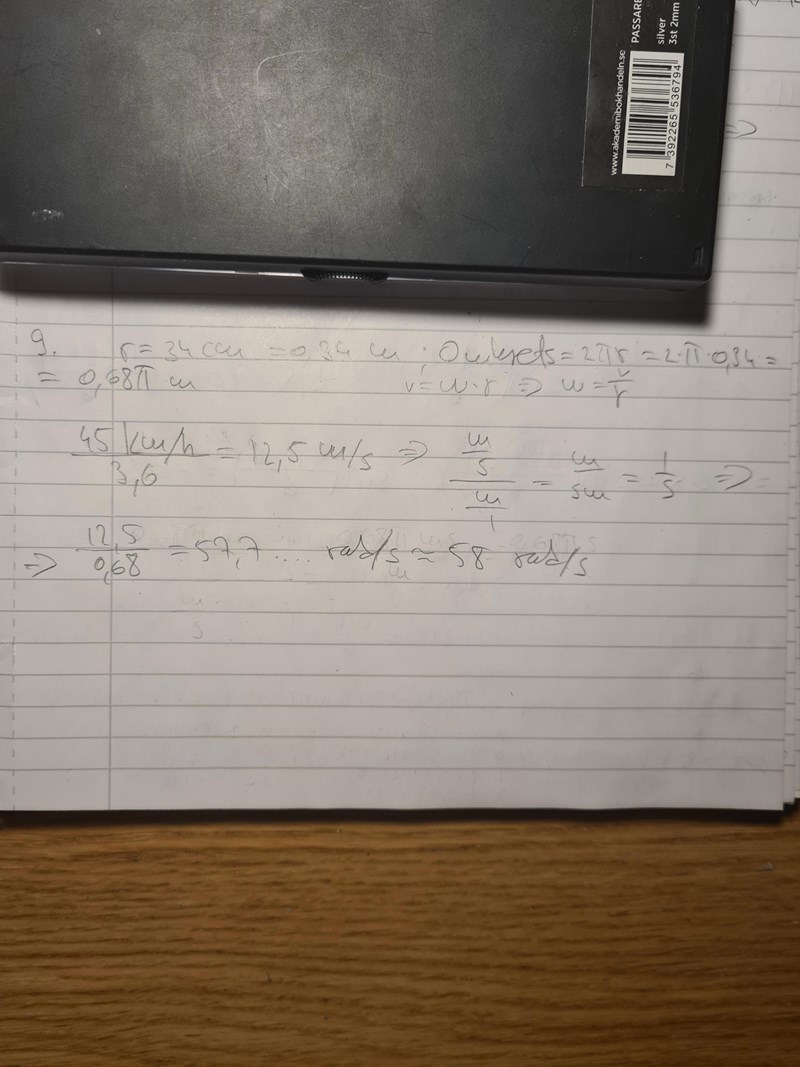 PASSARE
silver
3st 2mm
www.akademibokhandeln.se
7 392265 536794
⇒
9. r = 34 cm = 0,34 m ; Omkrets = 2πr = 2·π·0,34 =
= 0,68π m v = ω·r ⇒ ω = v/r
45 km/h / 3,6 = 12,5 m/s ⇒ (m/s)/(m/1) = m/sm = 1/s ⇒
⇒ 12,5/0,68 = 57,7.... rad/s ≈ 58 rad/s